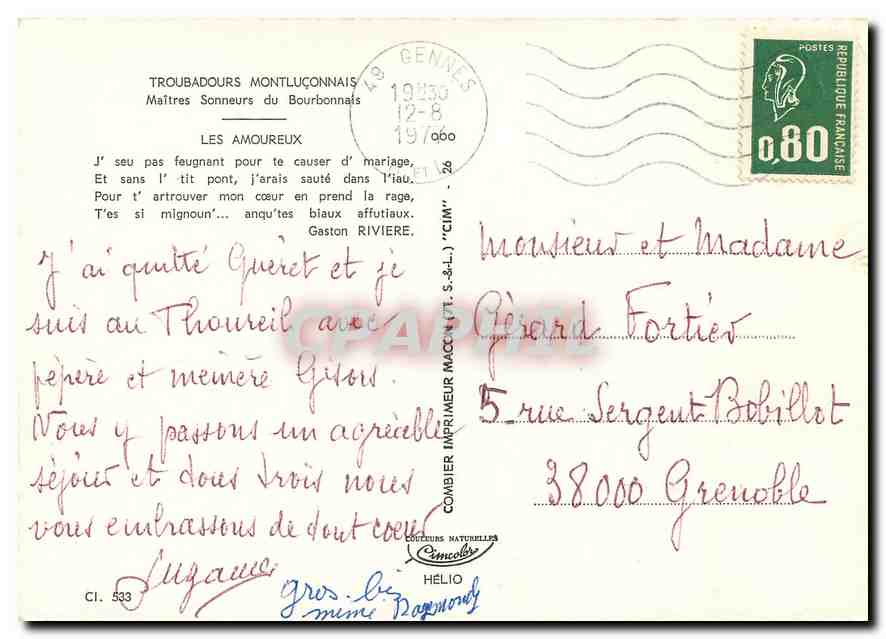 TROUBADOURS MONTLUÇONNAIS
Maîtres Sonneurs du Bourbonnais
LES AMOUREUX
J' seu pas feugnant pour te causer d' mariage,
Et sans l' tit pont, j'arais sauté dans l'iau.
Pour t' artrouver mon cœur en prend la rage,
T'es si mignoun'... anqu'tes biaux affutiaux.
Gaston RIVIERE.
J'ai quitté Guéret et je
suis au Thoureil avec
pépère et mémère Gisors.
Nous y passons un agréable
séjour et tous trois nous
vous embrassons de tout coeur
gros. bis
mémé Raymonde
CI. 533
COMBIER IMPRIMEUR MACON (71. S.-&-L.) "CIM" - 26
COULEURS NATURELLES
Cimcolor
HÉLIO
49 GENNES
12-8
POSTES
RÉPUBLIQUE FRANÇAISE
0,80
Monsieur et Madame
Gérard Fortier
5 rue Sergent Bobillot
38000 Grenoble
CPAPHIL